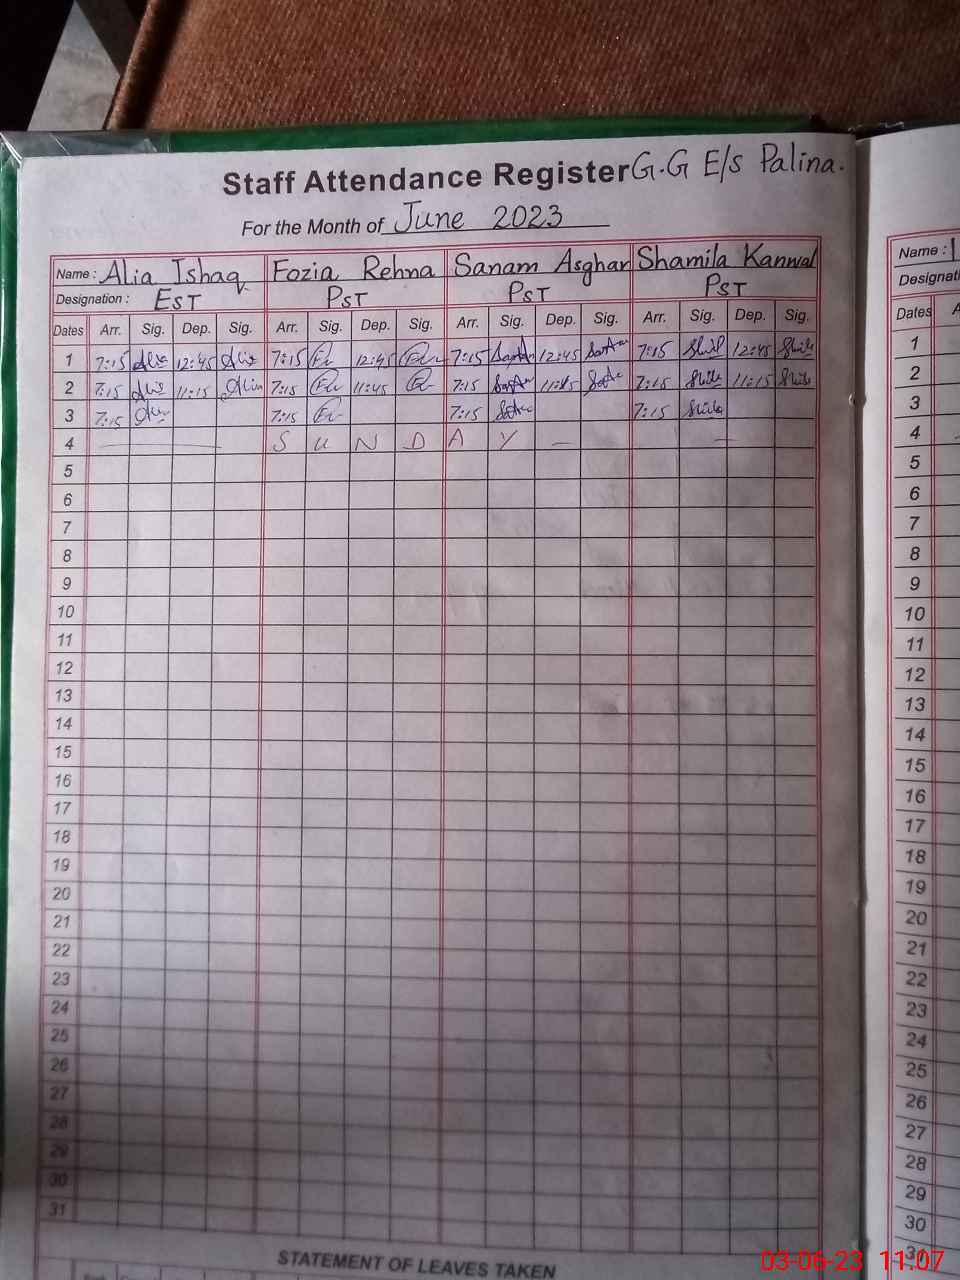 Staff Attendance Register G.G E/s Palina.
For the Month of June 2023
Name : Alia Ishaq Fozia Rehna Sanam Asghar Shamila Kanwal
Designation : EST PST PST PST
Dates Arr. Sig. Dep. Sig. Arr. Sig. Dep. Sig. Arr. Sig. Dep. Sig. Arr. Sig. Dep. Sig.
1 7:15 12:45 7:15 12:45 7:15 12:45 7:15 12:45
2 7:15 11:15 7:15 11:45 7:15 7:15 11:15
3 7:15 7:15 7:15 7:15
4 — S U N D A Y — —
5
6
7
8
9
10
11
12
13
14
15
16
17
18
19
20
21
22
23
24
25
26
27
28
29
30
31
STATEMENT OF LEAVES TAKEN
Name :
Dates
1
2
3
4
5
6
7
8
9
10
11
12
13
14
15
16
17
18
19
20
21
22
23
24
25
26
27
28
29
30
31
03-06-23 11:07